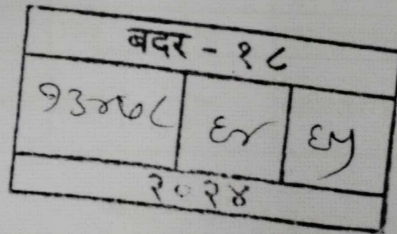 बदर - १८
१३४७८ ६४ ६५
२०२४